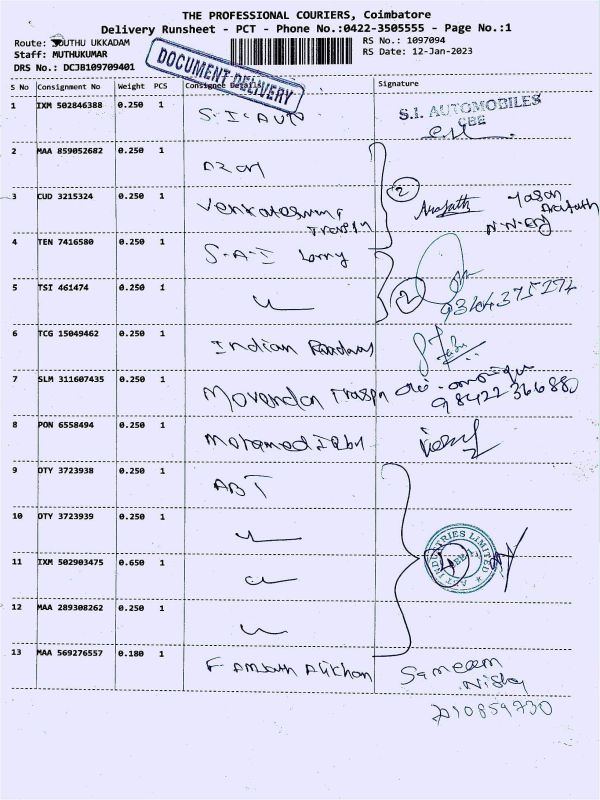 THE PROFESSIONAL COURIERS, Coimbatore
Delivery Runsheet - PCT - Phone No.:0422-3505555 - Page No.:1
Route: SOUTHU UKKADAM
RS No.: 1097094
Staff: MUTHUKUMAR
RS Date: 12-Jan-2023
DRS No.: DCJB109709401
DOCUMENT DELIVERY
S No Consignment No Weight PCS Consignee Details Signature
1 IXM 502846388 0.250 1 S.I. AUTO S.I. AUTOMOBILES
CBE
2 MAA 859052682 0.250 1
2
3 CUD 3215324 0.250 1 Arafath Yasar
Arafath
4 TEN 7416580 0.250 1 S.A.I Lorry
5 TSI 461474 0.250 1 2
6 TCG 15049462 0.250 1 Indian
7 SLM 311607435 0.250 1 98422 366880
8 PON 6558494 0.250 1 Mohamed
9 OTY 3723938 0.250 1 ABT
10 OTY 3723939 0.250 1
11 IXM 502903475 0.650 1 INDUSTRIES LIMITED 4
12 MAA 289308262 0.250 1
13 MAA 569276557 0.180 1